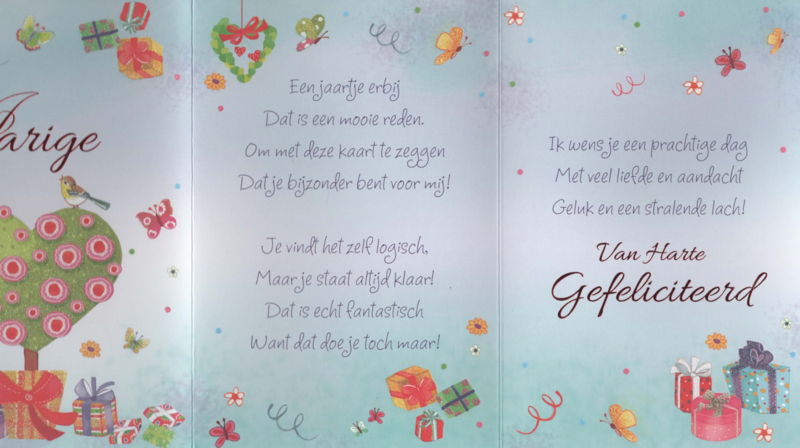 arige
Een jaartje erbij
Dat is een mooie reden.
Om met deze kaart te zeggen
Dat je bijzonder bent voor mij!
Je vindt het zelf logisch,
Maar je staat altijd klaar!
Dat is echt fantastisch
Want dat doe je toch maar!
Ik wens je een prachtige dag
Met veel liefde en aandacht
Geluk en een stralende lach!
Van Harte
Gefeliciteerd